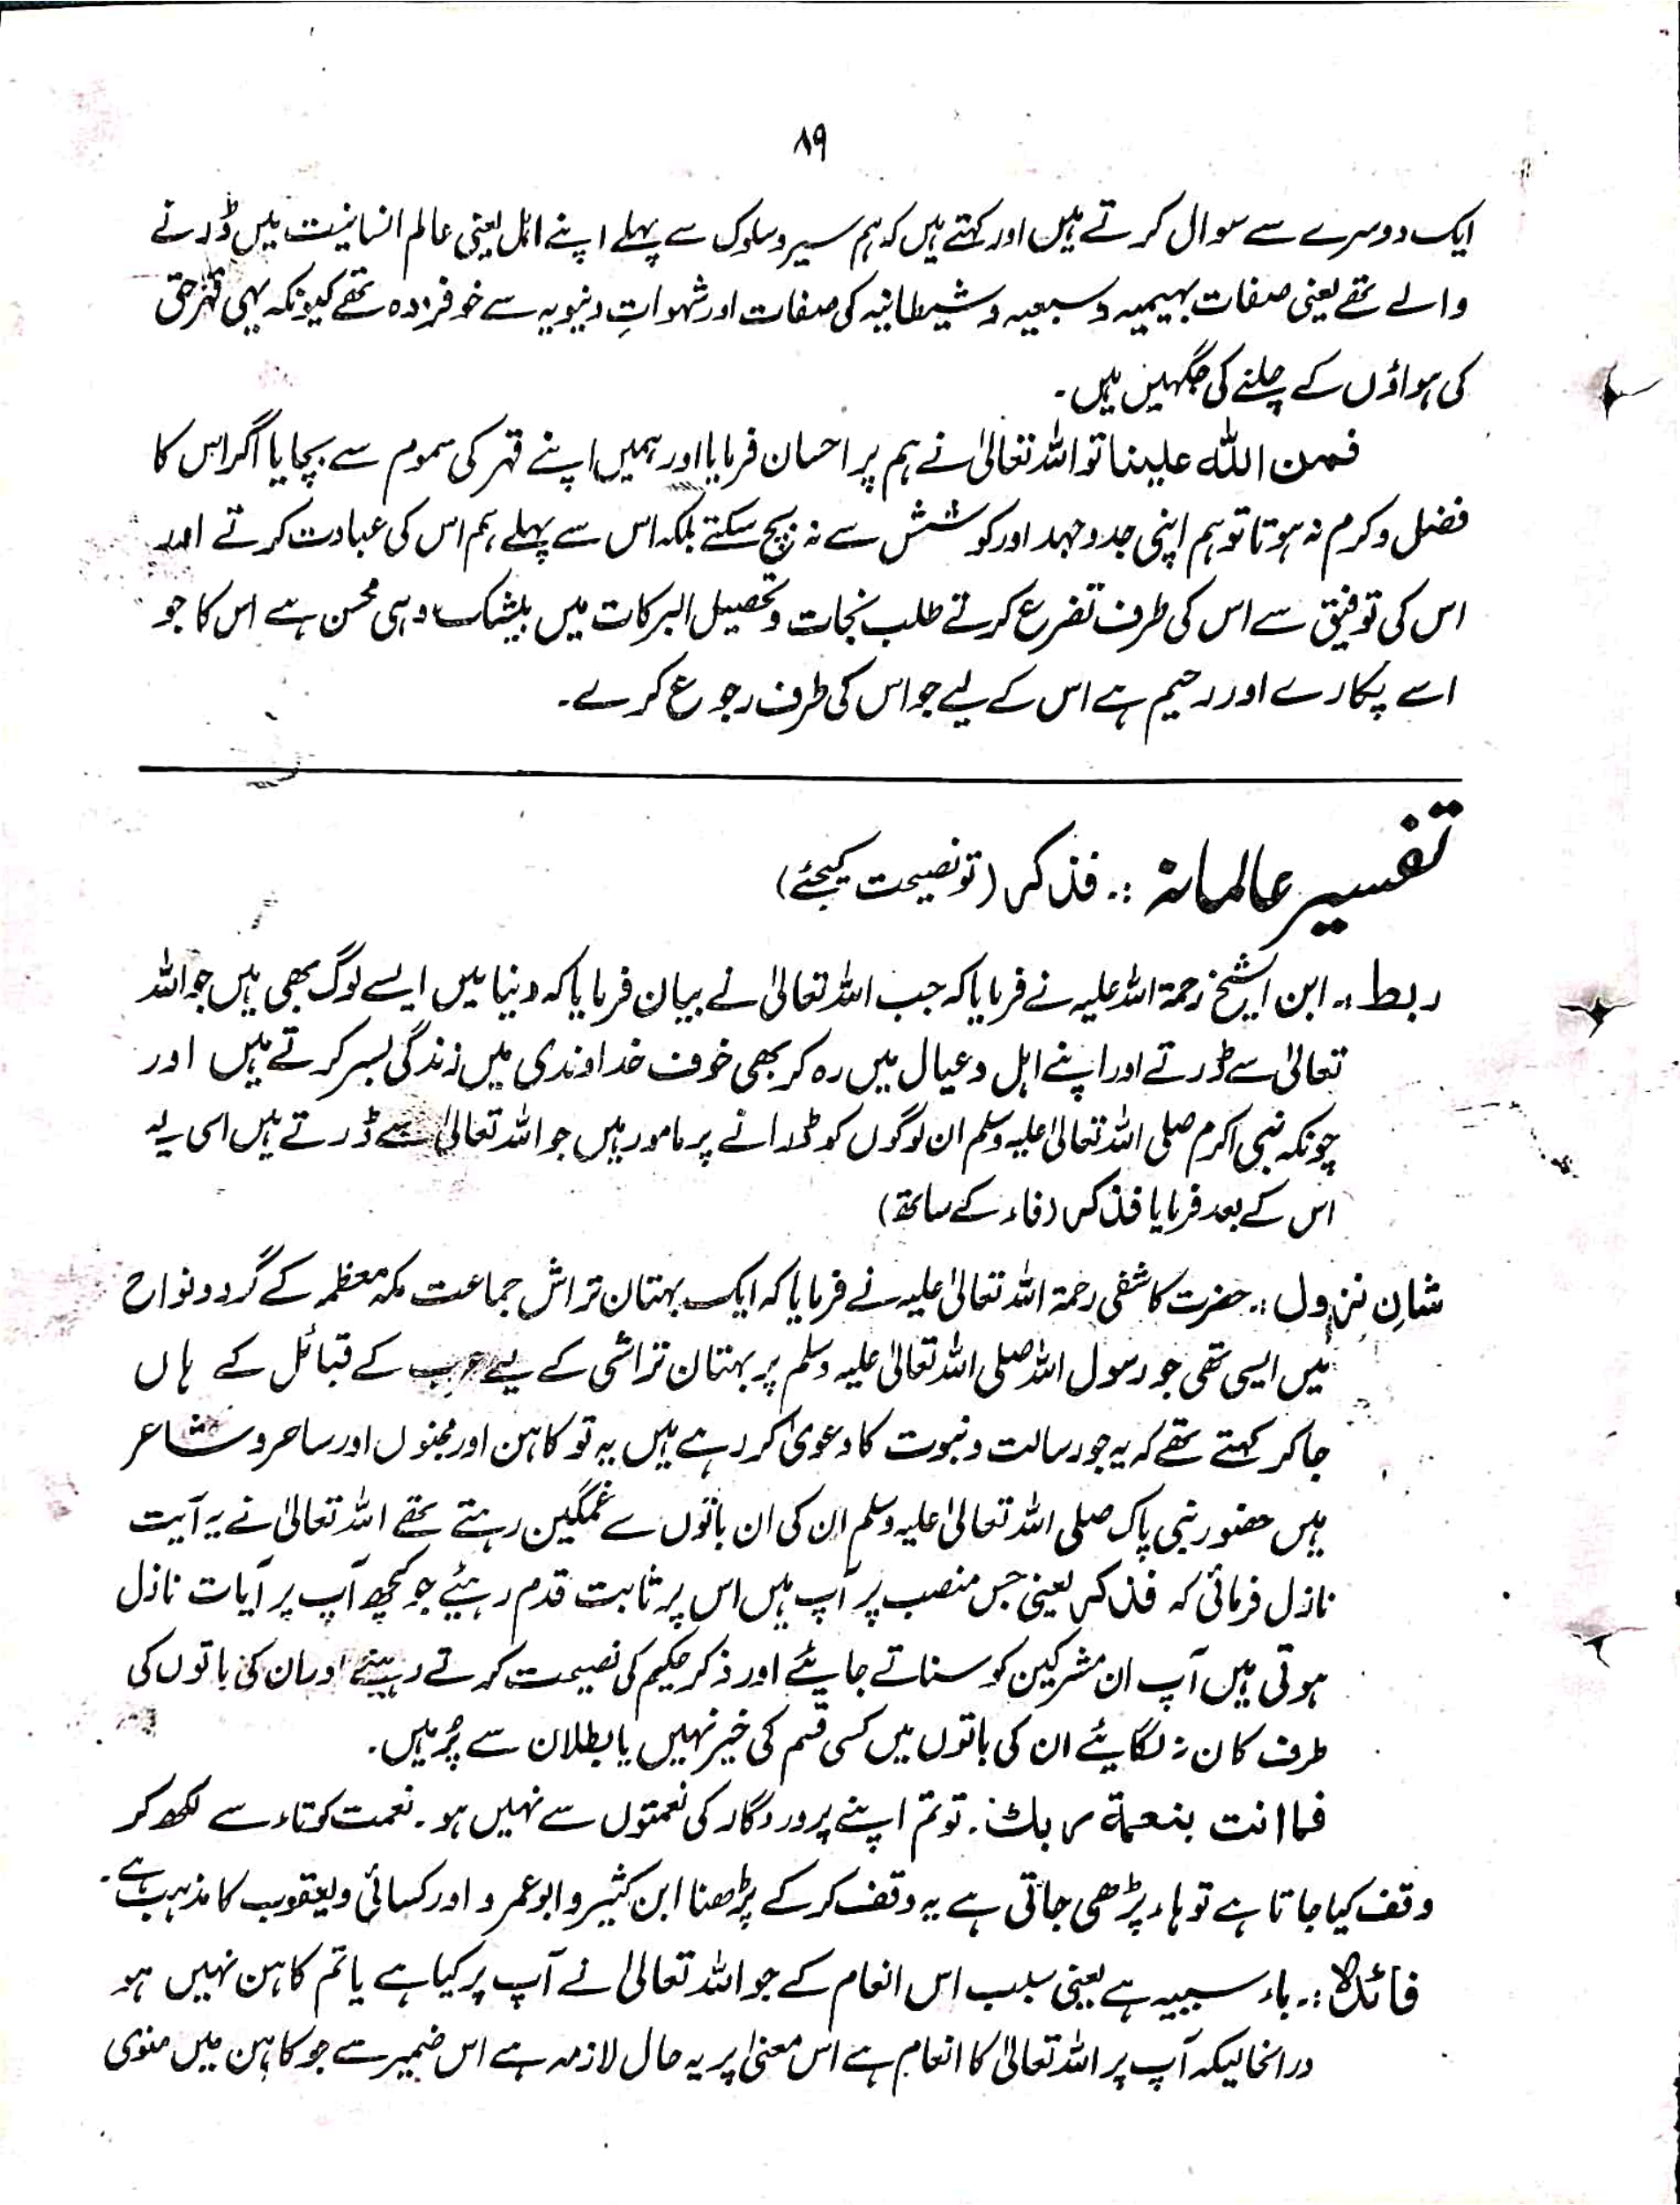 ۸۹
ایک دوسرے سے سوال کرتے ہیں اور کہتے ہیں کہ ہم سیر و سلوک سے پہلے اپنے اہل یعنی عالم انسانیت میں ڈرنے
والے تھے یعنی صفات بہیمیہ و سبعیہ و شیطانیہ کی صفات اور شہواتِ دنیویہ سے خوفزدہ تھے کیونکہ یہی قہر حق
کی ہواؤں کے چلنے کی جگہیں ہیں۔
فمن اللہ علینا تو اللہ تعالیٰ نے ہم پر احسان فرمایا اور ہمیں اپنے قہر کی سموم سے بچایا اگر اس کا
فضل و کرم نہ ہوتا تو ہم اپنی جدوجہد اور کوشش سے نہ بچ سکتے بلکہ اس سے پہلے ہم اس کی عبادت کرتے اور
اس کی توفیق سے اس کی طرف تضرع کرتے طلب نجات و تحصیل البرکات میں بیشک وہی محسن ہے اس کا جو
اسے پکارے اور رحیم ہے اس کے لیے جو اس کی طرف رجوع کرے۔
تفسیر عالمانہ :۔ فذکر (تو نصیحت کیجئے)
ربط :۔ ابن الشیخ رحمۃ اللہ علیہ نے فرمایا کہ جب اللہ تعالیٰ نے بیان فرمایا کہ دنیا میں ایسے لوگ بھی ہیں جو اللہ
تعالیٰ سے ڈرتے اور اپنے اہل و عیال میں رہ کر بھی خوف خداوندی میں زندگی بسر کرتے ہیں اور
چونکہ نبی اکرم صلی اللہ تعالیٰ علیہ وسلم ان لوگوں کو ڈرانے پر مامور ہیں جو اللہ تعالیٰ سے ڈرتے ہیں اسی لیے
اس کے بعد فرمایا فذکر (فاء کے ساتھ)
شانِ نزول :۔ حضرت کاشفی رحمۃ اللہ تعالیٰ علیہ نے فرمایا کہ ایک بہتان تراش جماعت مکہ معظمہ کے گرد و نواح
میں ایسی تھی جو رسول اللہ صلی اللہ تعالیٰ علیہ وسلم پر بہتان تراشی کے لیے عرب کے قبائل کے ہاں
جا کر کہتے تھے کہ یہ جو رسالت و نبوت کا دعویٰ کر رہے ہیں یہ تو کاہن اور مجنوں اور ساحر و شاعر
ہیں حضور نبی پاک صلی اللہ تعالیٰ علیہ وسلم ان کی ان باتوں سے غمگین رہتے تھے اللہ تعالیٰ نے یہ آیت
نازل فرمائی کہ فذکر یعنی جس منصب پر آپ ہیں اس پر ثابت قدم رہیئے جو کچھ آپ پر آیات نازل
ہوتی ہیں آپ ان مشرکین کو سناتے جایئے اور ذکر حکیم کی نصیحت کرتے رہیئے اور ان کی باتوں کی
طرف کان نہ لگایئے ان کی باتوں میں کسی قسم کی خیر نہیں یا بطلان سے پُر ہیں۔
فما انت بنعمۃ ربک :۔ تو تم اپنے پروردگار کی نعمتوں سے نہیں ہو۔ نعمت کو تاء سے لکھ کر
وقف کیا جاتا ہے تو ہاء پڑھی جاتی ہے یہ وقف کرکے پڑھنا ابن کثیر و ابو عمرو اور کسائی و یعقوب کا مذہب ہے۔
فائدہ :۔ باء سببیہ ہے یعنی سبب اس انعام کے جو اللہ تعالیٰ نے آپ پر کیا ہے یا تم کاہن نہیں ہو
درانحالیکہ آپ پر اللہ تعالیٰ کا انعام ہے اس معنیٰ پر یہ حال لازمہ ہے اس ضمیر سے جو کاہن میں منوی